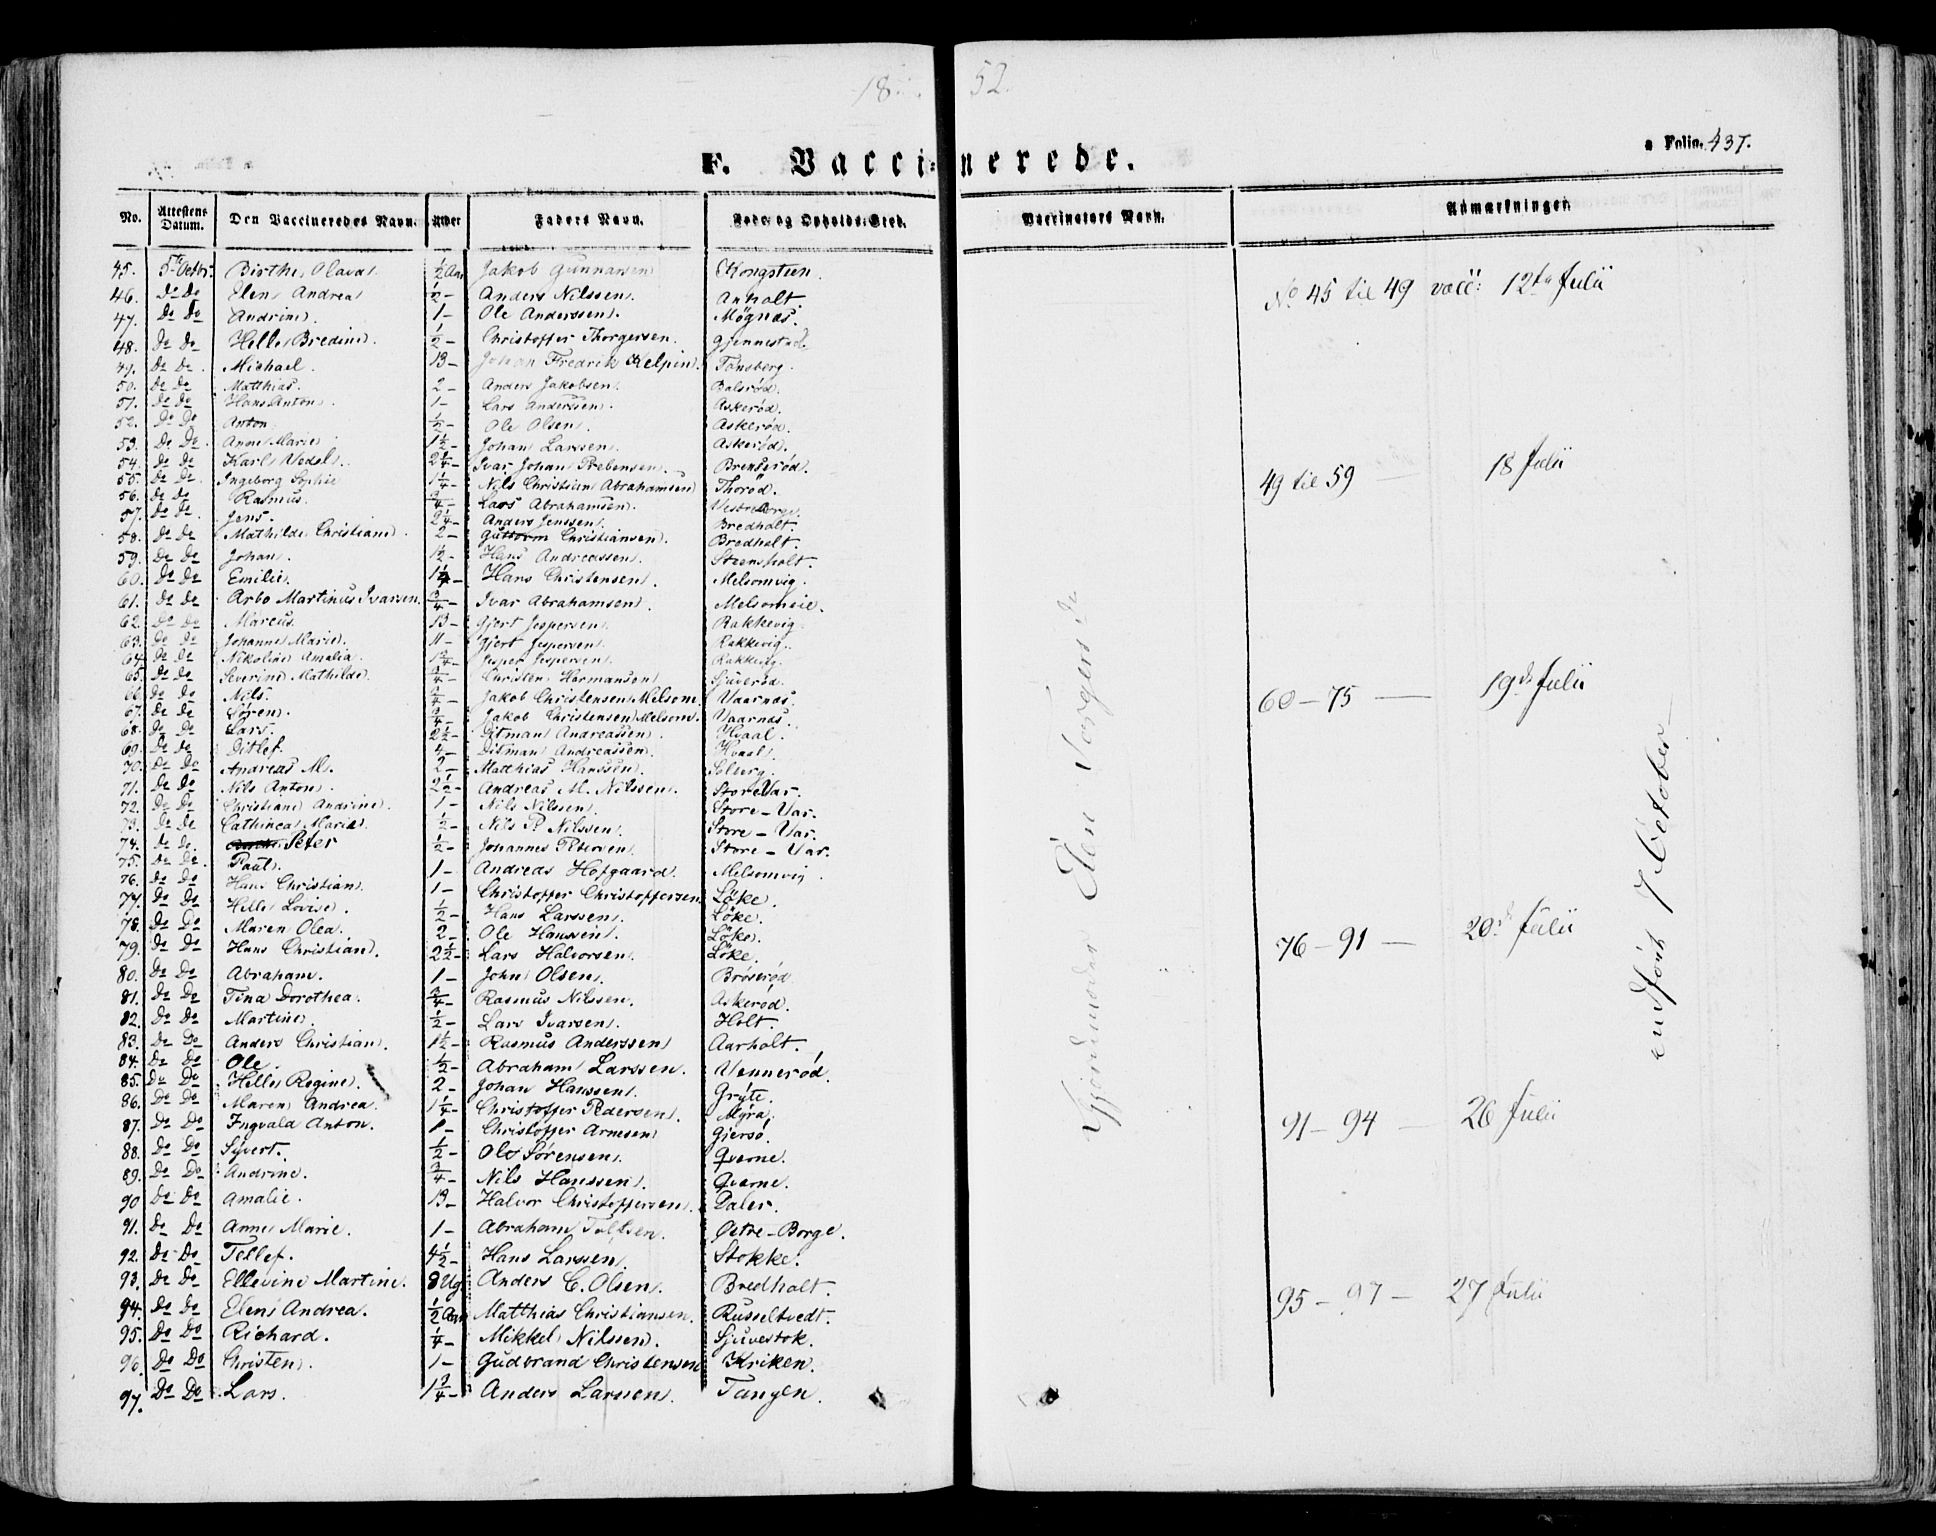 18 52.
a Folio. 437.
F. Vaccinerede.
No. | Attestens Datum. | Den Vaccineredes Navn. | Alder | Faders Navn. | Føde- og Opholds-Sted. | Vaccinators Navn. | Anmærkninger.
45. 5te Octbr. Birthe Olava. ½ Aar Jakob Gunnarsen Kongsteen.
46. Do Do Elen Andrea ½ – Anders Nilssen. Anholt.
47. Do Do Andrine. 1 – Ole Anderssen. Mögnas.
48. Do Do Helle Bredine. ½ – Christoffer Thorgersen. Gjennestad.
49. Do Do Michael. 13 – Johan Fredrik Kelpin. Tønsberg.
50. Do Do Matthias. 2 – Anders Jakobsen. Balsrød.
51. Do Do Hans Anton. 1 – Lars Anderssen. Askerød.
52. Do Do Anton. ½ – Ole Olsen. Askerød.
53. Do Do Anne Marie. 1½ – Johan Larssen. Askerød.
54. Do Do Karl Vedel. 2¼ – Ivar Johan Prebensen. Brenserød.
55. Do Do Ingeborg Sophie 1¼ – Nils Christian Abrahamsen Thorød.
56. Do Do Rasmus. ¾ – Lars Abrahamsen. Vestre Borge.
57. Do Do Jens. 2¼ – Anders Jenssen. Bredholt.
58. Do Do Mathilde Christiane. 2 – Guttorm Christiansen. Bredholt.
59. Do Do Johan. ½ – Hans Andreassen. Steensholt.
60. Do Do Emilie. 1¼ – Hans Christensen. Melsomvig.
61. Do Do Arbo Martinus Ivarsen. ¾ – Ivar Abrahamsen. Melsomeie.
62. Do Do Marcus. 13 – Gjert Jespersen. Rakkevig.
63. Do Do Johanne Marie. 11 – Gjert Jespersen. Rakkevig.
64. Do Do Nikoline Amalia. 1¾ – Jesper Jespersen. Rakkevig.
65. Do Do Severine Mathilde. ¾ – Christen Hermansen. Sjuverød.
66. Do Do Nils. ¾ – Jakob Christensen Melsom. Vaarnæs.
67. Do Do Søren. ¾ – Jakob Christensen Melsom. Vaarnæs.
68. Do Do Lars. 2½ – Ditman Andreassen. Hvaal.
69. Do Do Ditlef. 4 – Ditman Andreassen. Hvaal.
70. Do Do Andreas M. 2 – Matthias Hanssen. Solberg.
71. Do Do Nils Anton. 2½ – Andreas M. Nilssen. Store Var.
72. Do Do Christiane Andrine. 1 – Nils Nilssen. Store – Var.
73. Do Do Cathinca Marie. ½ – Nils P. Nilssen. Store – Var.
74. Do Do Peter ½ – Johannes Petersen. Store – Var.
75. Do Do Paul. 1 – Andreas Hofgaard. Melsomvig.
76. Do Do Hans Christian. 1 – Christoffer Christoffersen Löke.
77. Do Do Helle Lovise. ½ – Hans Larssen. Löke.
78. Do Do Maren Olea. 2 – Ole Hanssen. Löke.
79. Do Do Hans Christian. 2½ – Lars Halvorsen. Löke.
80. Do Do Abraham. 1 – John Olsen. Bröserød
81. Do Do Tina Dorothea. ¾ – Rasmus Nilssen. Askerød.
82. Do Do Martine. ½ – Lars Ivarsen. Holt.
83. Do Do Anders Christian. 1½ – Rasmus Anderssen Aarholt.
84. Do Do Ole. ½ – Abraham Larssen. Vennerød.
85. Do Do Helle Regine. 2 – Johan Hanssen. Gryte.
86. Do Do Maren Andrea. 1¼ – Christoffer Pedersen. Myra.
87. Do Do Ingvald Anton. 1 – Christoffer Arnesen Gjersö.
88. Do Do Syvert. ½ – Ole Sørensen. Qværne.
89. Do Do Andrine. ¾ – Nils Hanssen. Qværne.
90 Do Do Amalie. 13 – Halvor Christoffersen. Daler.
91. Do Do Anne Marie. 1 – Abraham Tollfsen. Østre – Borge.
92. Do Do Tellef. 4½ – Hans Larssen. Stokke.
93. Do Do Ellevine Martine. 8 Ug. Anders C. Olsen. Bredholt.
94. Do Do Elen Andrea. ½ Aar Matthias Christiansen. Russeltvedt.
95. Do Do Richard. ¼ – Mikkel Nilssen. Sjuvestok.
96. Do Do Christen. 1 – Gudbrand Christensen Kriken.
97. Do Do Lars. 1¾ – Anders Larssen. Tangen.
Gjordmoder Elen Torgersd.
No 45 til 49 vacc: 12te Julii
49 til 59 — 18 Julii
60 – 75 — 19de Julii
76 – 91 — 20d Julii
91 – 94 — 26 Julii
95 – 97 — 27 Julii
indført 7 October –